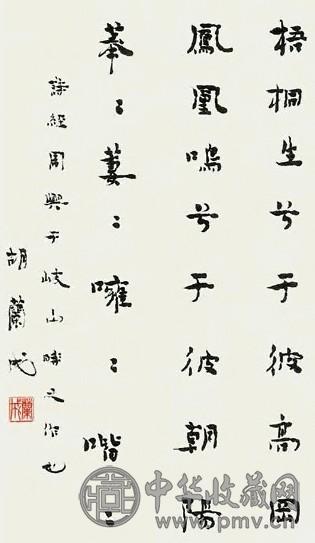 梧桐生兮于彼高岡
鳳凰鳴兮于彼朝陽
菶〻萋〻噰〻喈〻
詩經周興于岐山時之作也
胡蘭成
蘭成
中华收藏网
www.pmv.cn